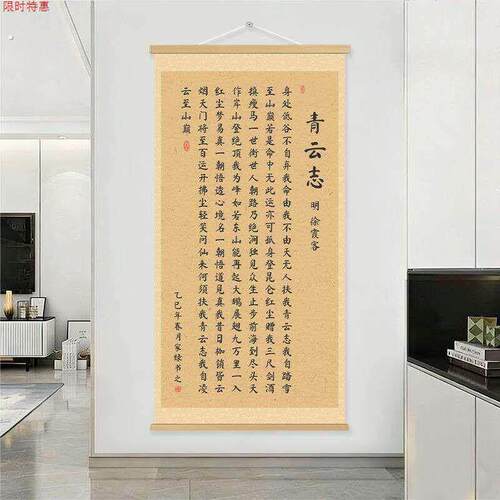 限时特惠
青云志
明 徐霞客
身处低谷不自弃我命由我不由天无人扶我青云志我自踏雪
至山巅若是命中无此运亦可孤身登昆仑红尘赠我三尺剑酒
瘦马一世世人一朝路乃绝涧独见众生止步前海到尽头天
作岸山登绝顶我为峰如若东山能再起大鹏展翅九万里一入
红尘梦易真一朝悟透心境名一朝悟道见真我昔日枷锁皆云
烟天门将至百运开拂尘轻笑问仙来何须扶我青云志我自凌
云至山巅
乙巳年春月家书之